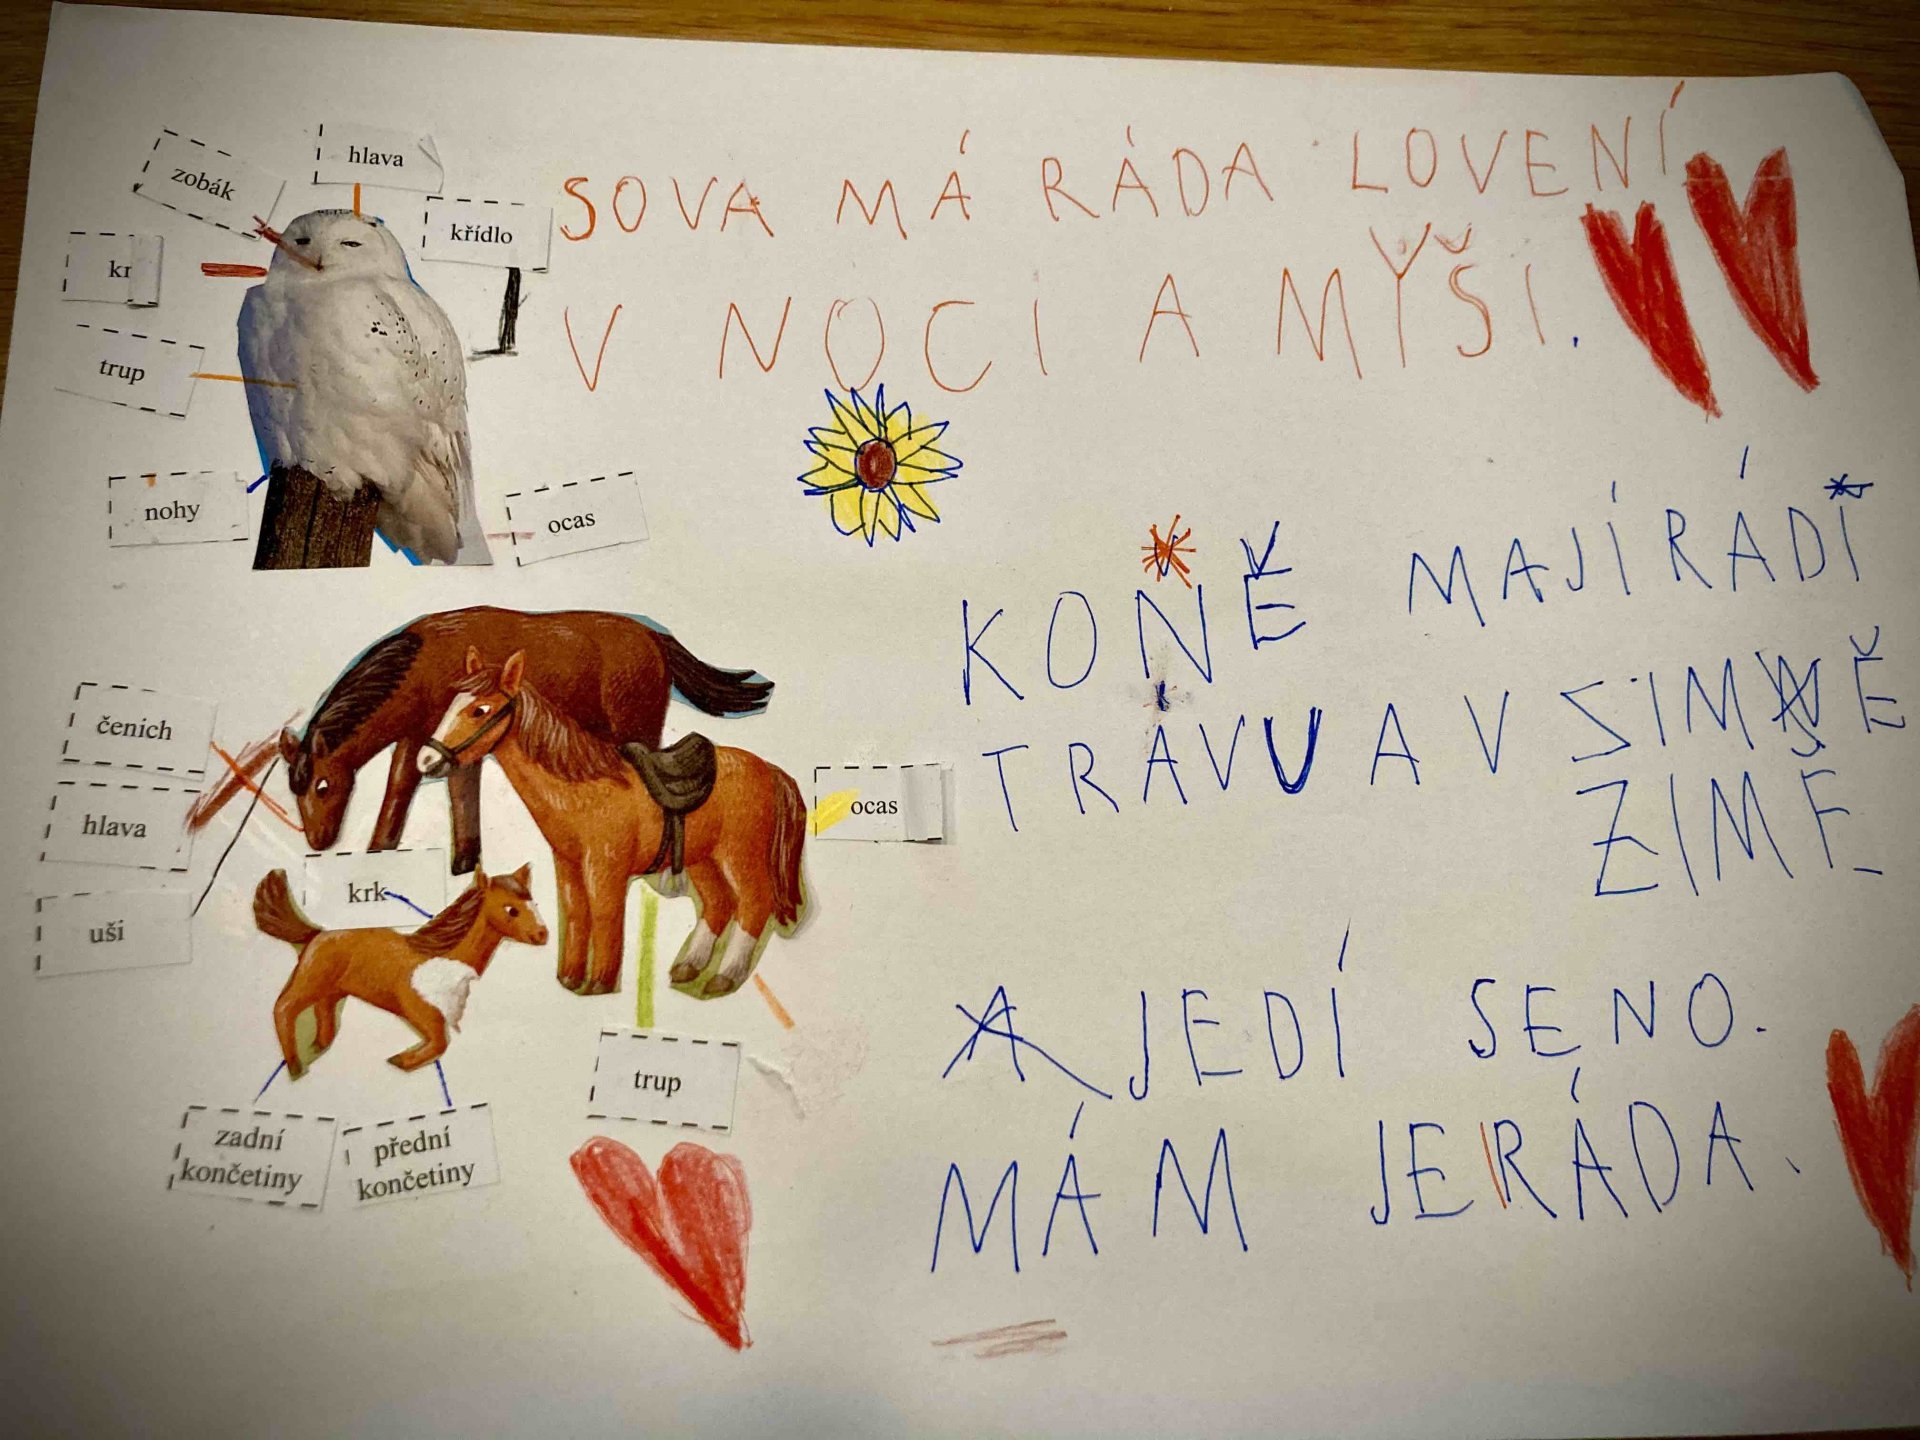 hlava
zobák
křídlo
trup
nohy
ocas
SOVA MÁ RÁDA LOVENÍ
V NOCI A MYŠI.
čenich
hlava
uši
krk
ocas
trup
zadní
končetiny
přední
končetiny
KONĚ MAJÍ RÁDI
TRAVU A V ZIMĚ
JEDÍ SENO.
MÁM JE RÁDA.